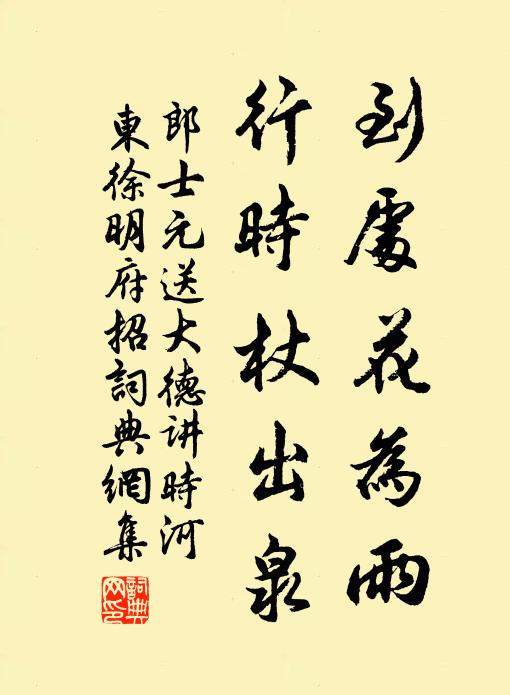 到處花為雨
行時杖出泉
郎士元送大德讲時河
東徐明府招詞典網集
詞典网印